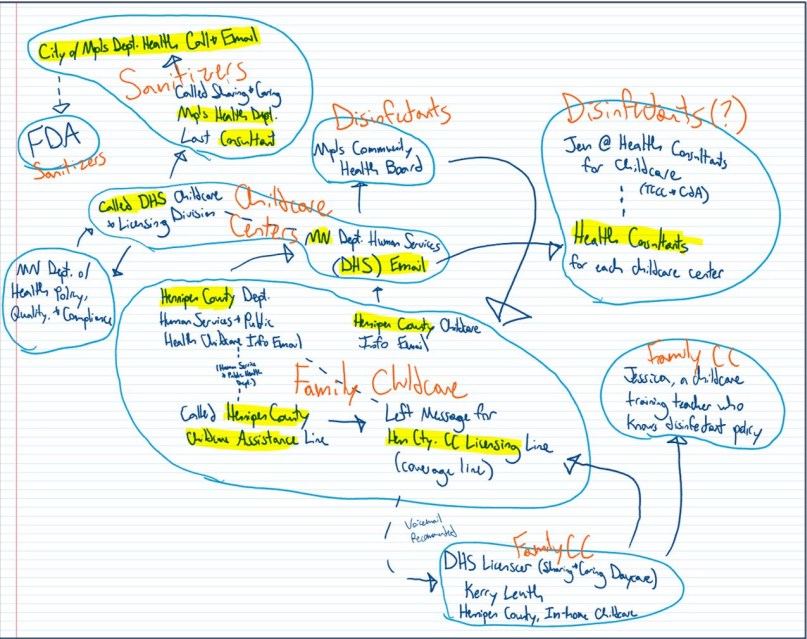 City of Mpls Dept. Health Call + Email
Sanitizers
Called Sharing + Caring
Mpls Health Dept.
Last Consultant
FDA
Sanitizers
Disinfectants
Mpls Community
Health Board
Disinfectants (?)
Jen @ Health Consultants
for Childcare
(TCC + CDA)
Health Consultants
for each childcare center
Called DHS Childcare
+ Licensing Division
Childcare
Centers
MN Dept. Human Services
(DHS) Email
MN Dept. of
Health Policy,
Quality, + Compliance
Hennipen County Dept.
Human Services + Public
Health Childcare Info Email
(Human Service
+ Public Health
Dept.)
Hennipen County Childcare
Info Email
Family Childcare
Called Hennipen County
Childcare Assistance Line
Left Message for
Hen Cty. CC Licensing Line
(coverage line)
Family CC
Jessica, a childcare
training teacher who
knows disinfectant policy
Voicemail
Recommended
Family CC
DHS Licenser (Sharing + Caring Daycare)
Kerry Lenth
Hennipen County, In-home Childcare